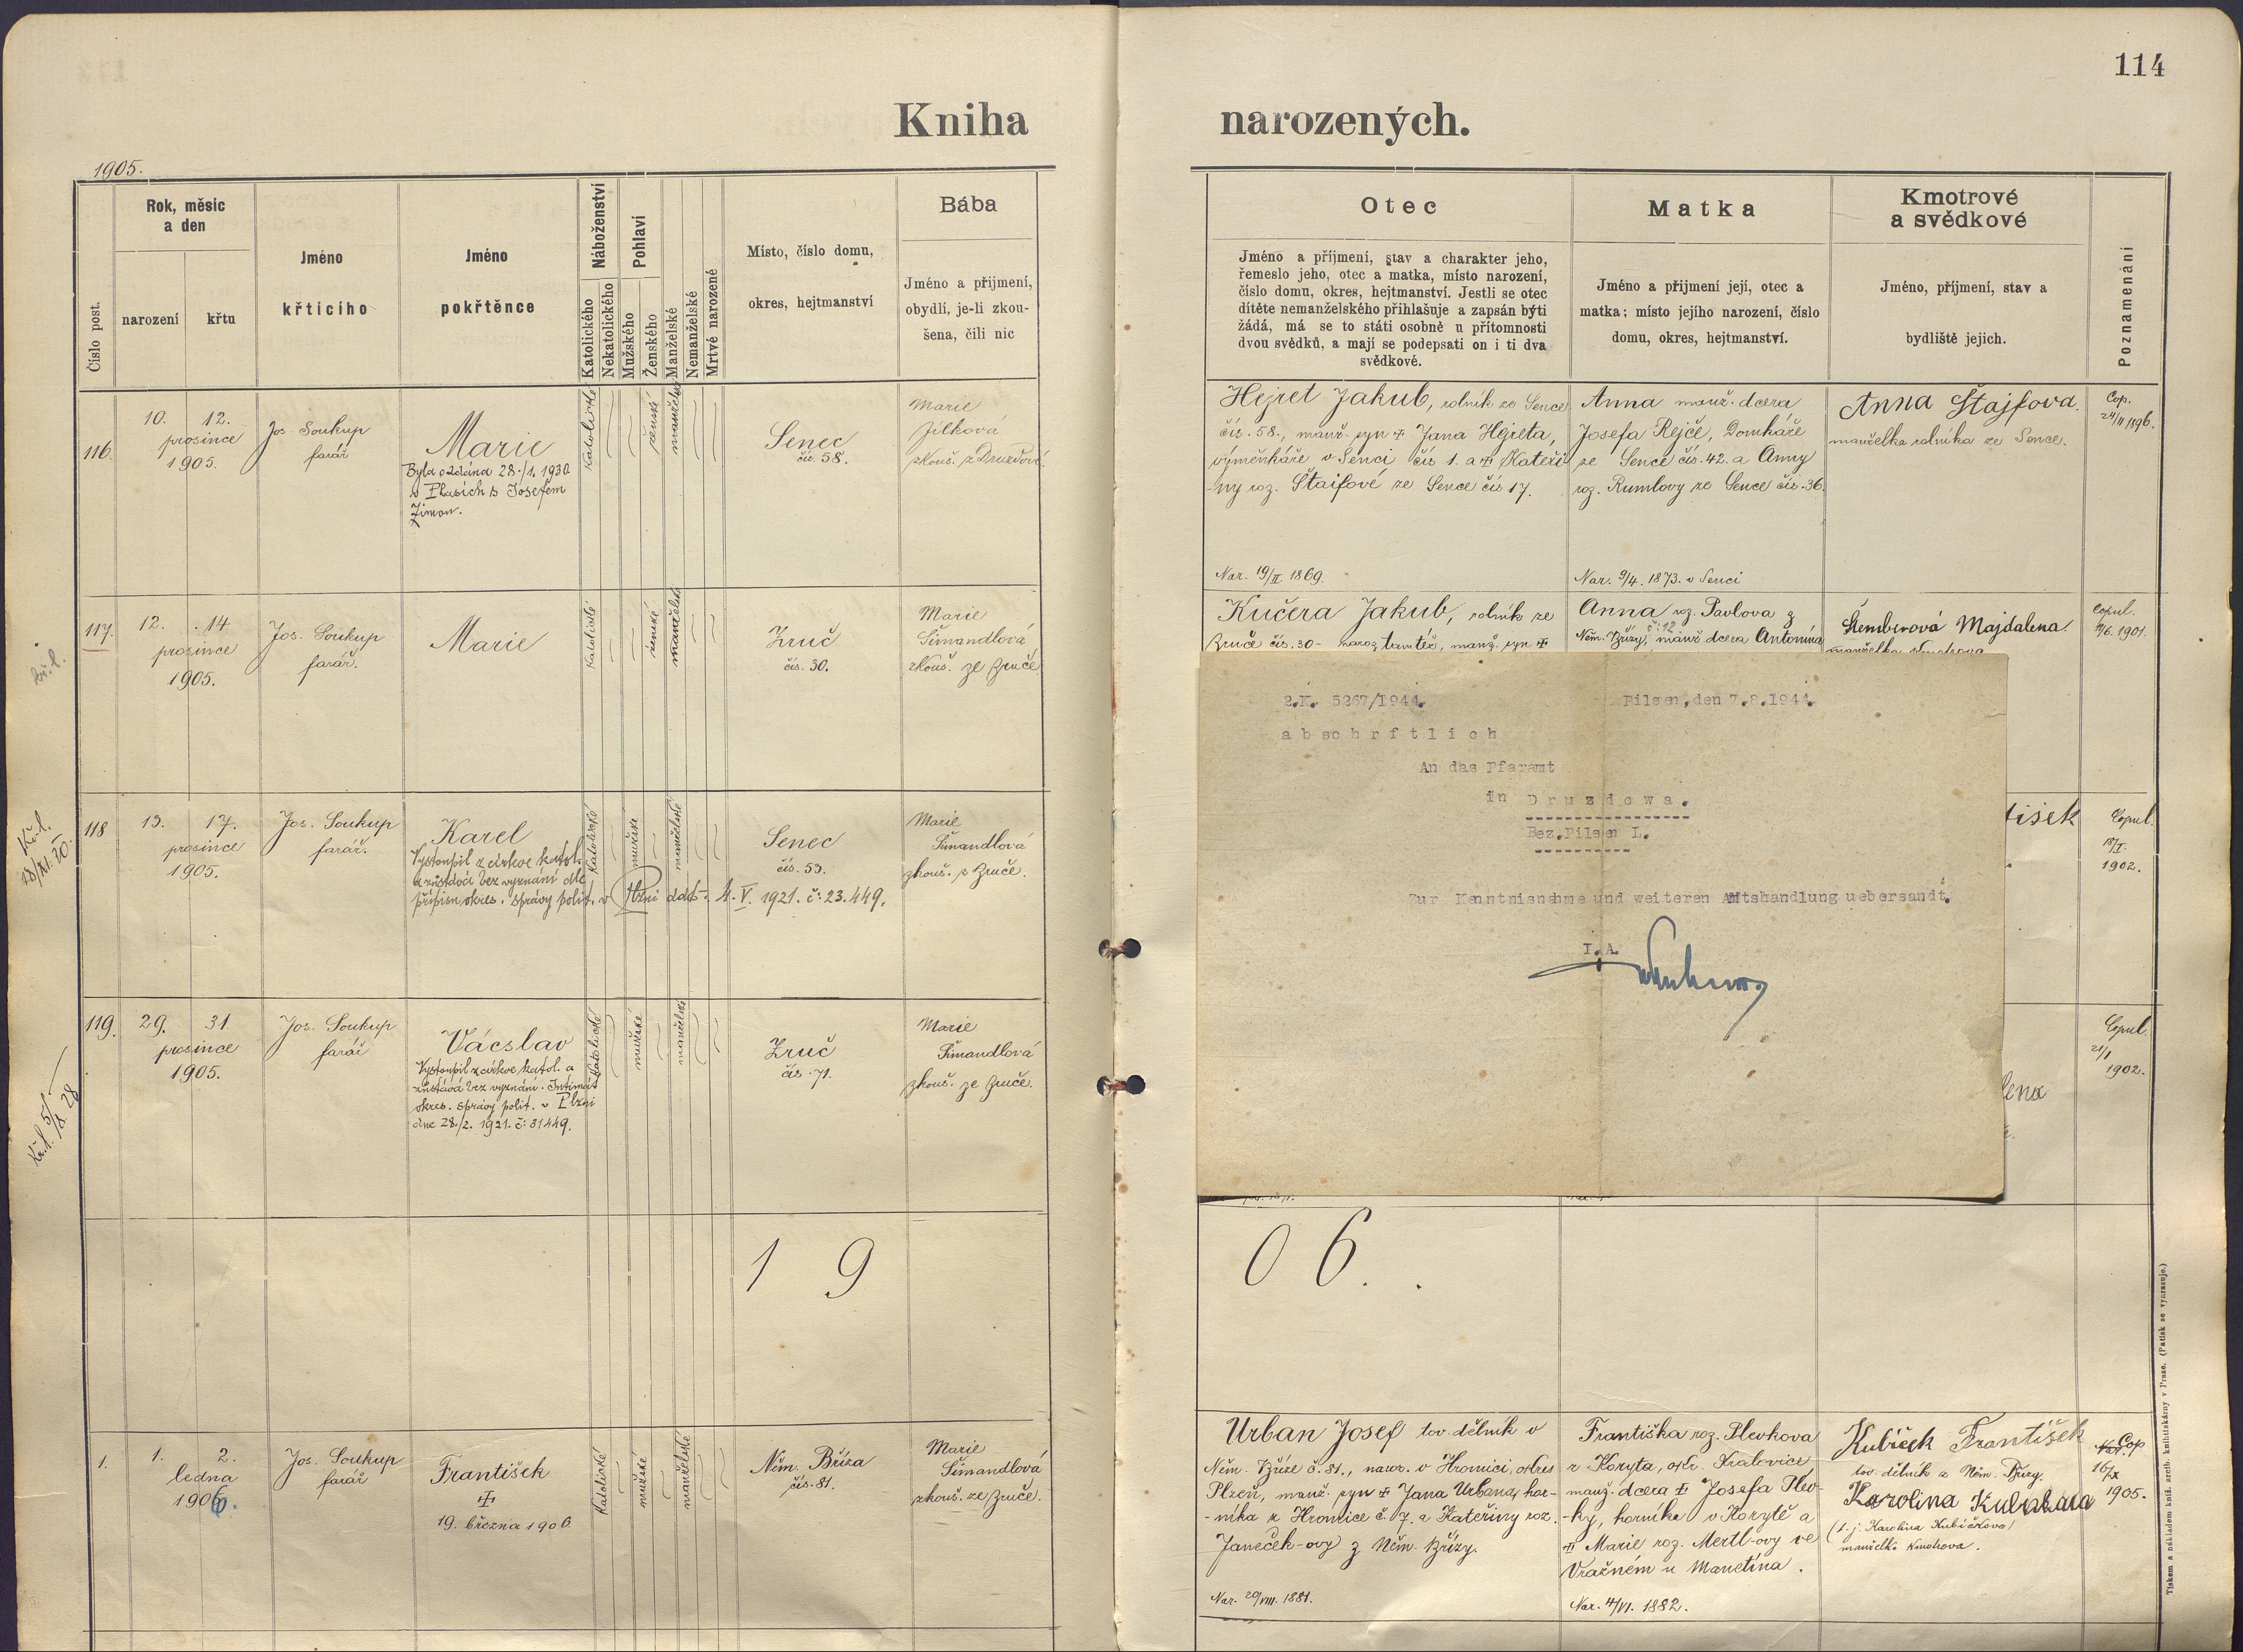 114
Kniha narozených.
1905.
Číslo post.
Rok, měsíc
a den
narození
křtu
Jméno
křtícího
Jméno
pokřtěnce
Náboženství
Katolického
Nekatolického
Pohlaví
Mužského
Ženského
Manželské
Nemanželské
Mrtvě narozené
Místo, číslo domu,
okres, hejtmanství
Bába
Jméno a přijmení,
obydlí, je-li zkou-
šena, čili nic
Otec
Jméno a příjmení, stav a charakter jeho,
řemeslo jeho, otec a matka, místo narození,
číslo domu, okres, hejtmanství. Jestli se otec
dítěte nemanželského přihlašuje a zapsán býti
žádá, má se to státi osobně u přítomnosti
dvou svědků, a mají se podepsati on i ti dva
svědkové.
Matka
Jméno a přijmení její, otec a
matka; místo jejího narození, číslo
domu, okres, hejtmanství.
Kmotrové
a svědkové
Jméno, příjmení, stav a
bydliště jejich.
Poznamenání
116.
10. 12.
prosince
1905.
Jos. Soukup
farář
Marie
Byla oddána 28./1. 1930
v Plasích s Josefem
Zimou.
Katolické
ženské
manželské
Senec
čís. 58.
Marie
Jílková
zkouš. z Druzdové.
Hejret Jakub, rolník ze Sence
čís. 58., manž. syn + Jana Hejreta,
výměnkáře v Senci čís 1. a + Kateři-
-ny roz. Štaifové ze Sence čís 17.
Nar. 19/II. 1869.
Anna manž. dcera
Josefa Rejče, Domkáře
ze Sence čís. 42. a Anny
roz. Rumlovy ze Sence čís. 36.
Nar. 9/4. 1873. v Senci
Anna Štajfova.
manželka rolníka ze Sence.
Cop.
24/II 1896.
117.
12. 14.
prosince
1905.
Jos. Soukup
farář.
Marie
Katolické
ženské
manželské
Zruč
čís. 30.
Marie
Šimandlová
zkouš. ze Zruče
Kučera Jakub, rolník ze
Zruče čís. 30- naroz. tamtéž, manž. syn +
Anna roz. Pavlova z
č: 12.
Něm. Břízy, manž dcera Antonína
Šemberová Majdalena.
Copul.
1901.
Kř. l.
118
13. 17.
prosince
1905.
Jos. Soukup
farář.
Karel
Vystoupil z církve katol.
a zůstává bez vyznání dle
přípisu okres. správy polit. v Plzni ddto. 4. V. 1921. č: 23.449.
Katolické
mužské
manželské
Senec
čís. 53.
Marie
Šimandlová
zkouš. z Zruče.
tišek
Copul.
18/I.
1902.
119.
29. 31
prosince
1905.
Jos. Soukup
farář
Vácslav
Vystoupil z církve katol. a
zůstává bez vyznání. Intimát
okres. správy polit. v Plzni
dne 28./2. 1921. č: 31449.
Katolické
mužské
manželské
Zruč
čís. 71.
Marie
Šimandlová
zkouš. ze Zruče.
lena
Copul.
21/1
1902.
2.K. 5267/1944. Pilsen,den 7.8.1944.
abschrftlich
An das Pfaramt
in Druzdowa.
Bez.Pilsen I.
Zur Kenntnisnahme und weiteren Amtshandlung uebersandt.
I.A.
1 9 0 6.
1.
1. 2.
ledna
1906.
Jos. Soukup
farář
František
+
19. března 1906.
Katolické
mužské
manželské
Něm. Bříza
čís. 81.
Marie
Šimandlová
zkouš. ze Zruče.
Urban Josef tov. dělník v
Něm. Bříze č. 81., naroz. v Hromici, okres
Plzeň, manž. syn + Jana Urbana, hor-
-níka z Hromice č. 7. a Kateřiny roz.
Janeček-ovy z Něm. Břízy.
Nar. 29/VIII. 1881.
Františka roz. Plevkova
z Koryta, okr. Kralovice
manž. dcera + Josefa Plev-
-ky, horníka v Korytě a
+ Marie roz. Mertl-ovy ve
Vražném u Manetína.
Nar. 4/VI. 1882.
Kubíček František
tov. dělník z Něm. Břízy.
Karolina
(t. j. Karolina Kubíčkova)
manželka kmotrova.
Cop
16/IX
1905.
Tiskem a nákladem kníž. arcib. knihtiskárny v Praze. (Patisk se vyhrazuje.)